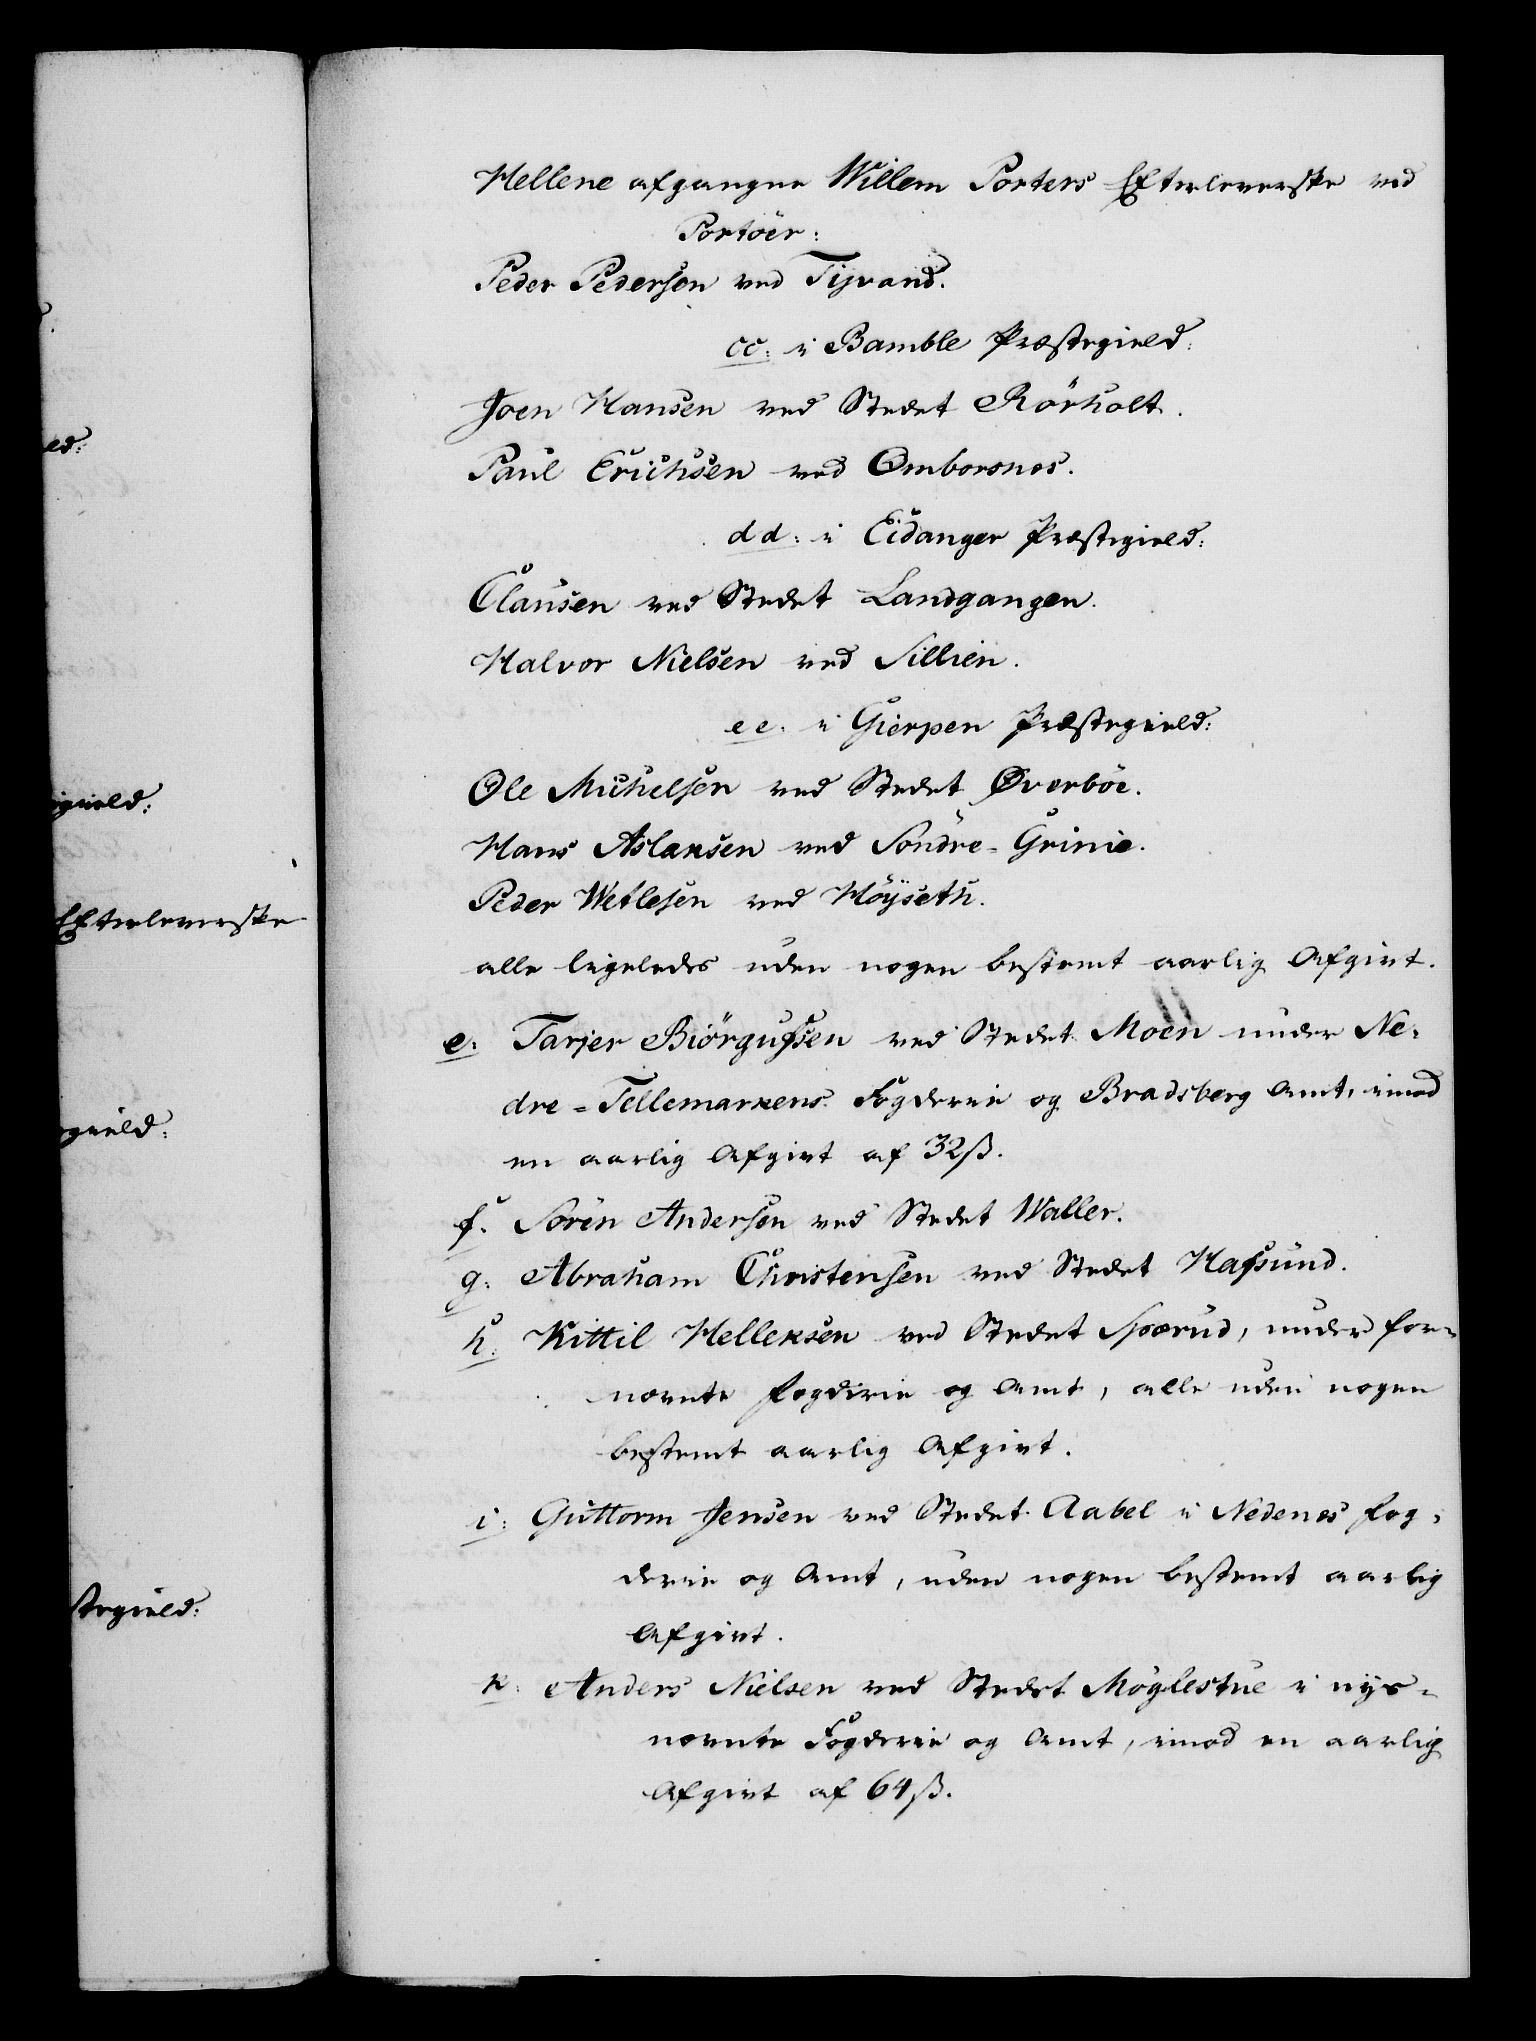 Hellene afgangne Willem Porters Efterleverske ved
Portöer:
Peder Pedersen ved Tisvand.
cc: i Bamble Præstegield:
Joen Hansen ved Stedet Rörholt.
Paul Erichsen ved Omborsnes.
dd: i Eidanger Præstegield:
Clausen ved Stedet Landgangen.
Halvor Nielsen ved Sillien.
ee. i Gierpen Præstegield:
Ole Michelsen ved Stedet Øverböe.
Hans Aslaksen ved Söndre-Grinie.
Peder Wetlesen ved Höÿseth.
alle ligeledes uden nogen bestemt aarlig Afgivt.
e. Tarjer Biörgufsen ved Stedet Moen under Ne-
dre-Tellemarkens Fogderie og Bradsberg Amt, imod
en aarlig Afgivt af 32 ß.
f. Sören Andersen ved Stedet Waller.
g. Abraham Christensen ved Stedet Hafsund.
h. Kittil Helleksen ved Stedet Sporud, under for-
nævnte Fogderie og Amt, alle uden nogen
bestemt aarlig Afgivt.
i: Guttorm Jensen ved Stedet Aabel i Nedenes Fog-
derie og Amt, uden nogen bestemt aarlig
Afgivt.
k. Anders Nielsen ved Stedet Möglestue i nÿs-
nævnte Fogderie og Amt, imod en aarlig
Afgivt af 64 ß.
ed:
gield:
Efterleverske
gield:
stegield: